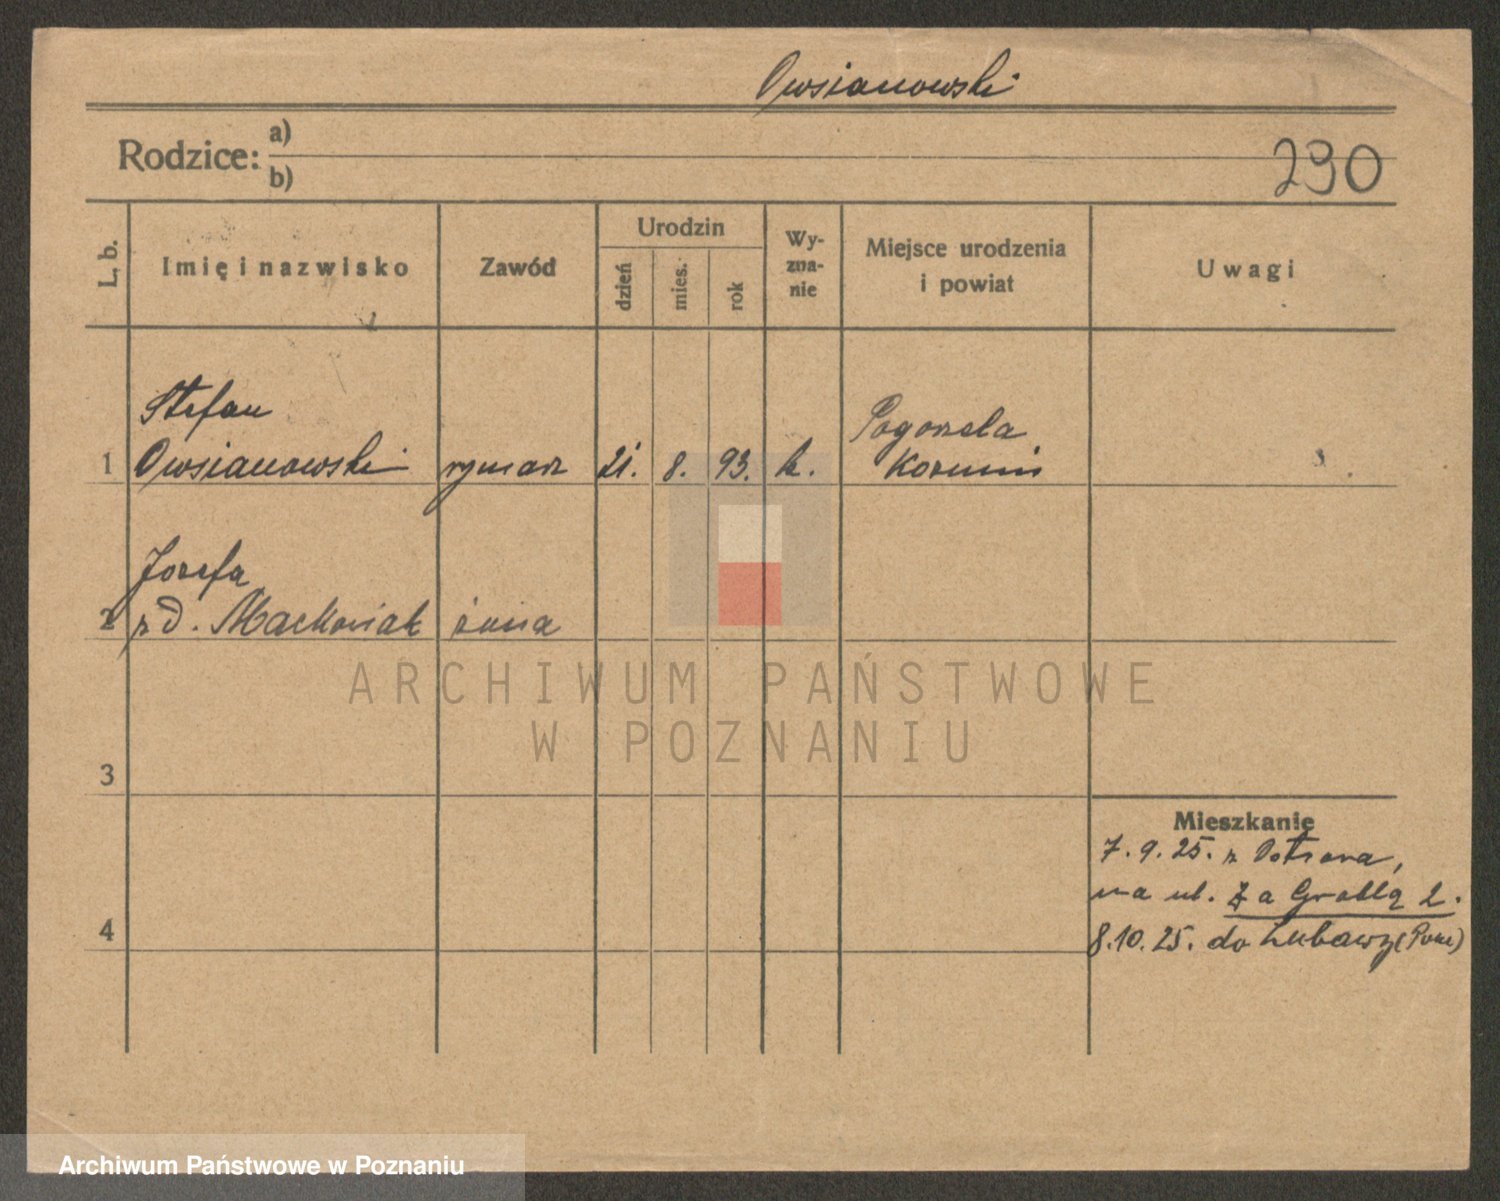 Owsianowski
Rodzice: a)
b)
290
L. b.
Imię i nazwisko
Zawód
Urodzin
dzień
mies.
rok
Wy-
zna-
nie
Miejsce urodzenia
i powiat
Uwagi
Stefan
Pogorzela
1 Owsianowski rymarz 21. 8. 93. k. Kozmin
Jozefa
2 z d. Maćkowiak żona
ARCHIWUM PAŃSTWOWE
W POZNANIU
3
Mieszkanie
7. 9. 25. z Ostrowa,
na ul. Za Groblą 2.
4
8. 10. 25. do Lubawy (Pom)
Archiwum Państwowe w Poznaniu